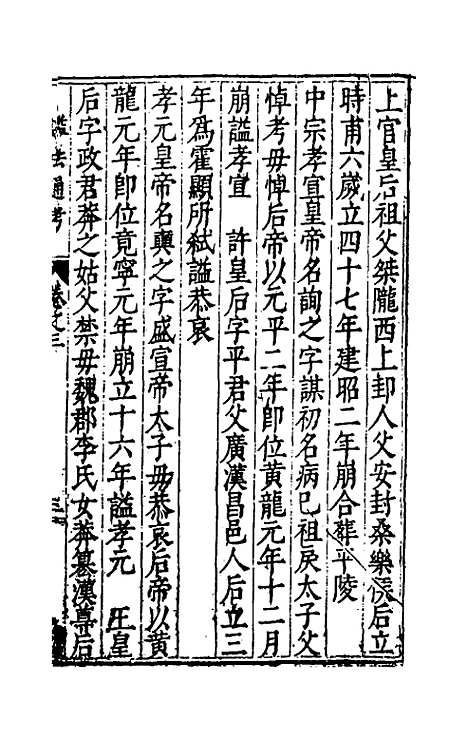 上官皇后祖父桀隴西上邽人父安封桑樂侯后立
時甫六歲立四十七年建昭二年崩合葬平陵
中宗孝宣皇帝名詢之字謀初名病巳祖戾太子父
悼考毋悼后帝以元平二年卽位黃龍元年十二月
崩謚孝宣　許皇后字平君父廣漢昌邑人后立三
年爲霍顯所弑謚恭哀
孝元皇帝名奭之字盛宣帝太子毋恭哀后帝以黃
龍元年卽位竟寧元年崩立十六年謚孝元　王皇
后字政君莽之姑父禁毋魏郡李氏女莽篡漢尊后
謚法通考　卷之三